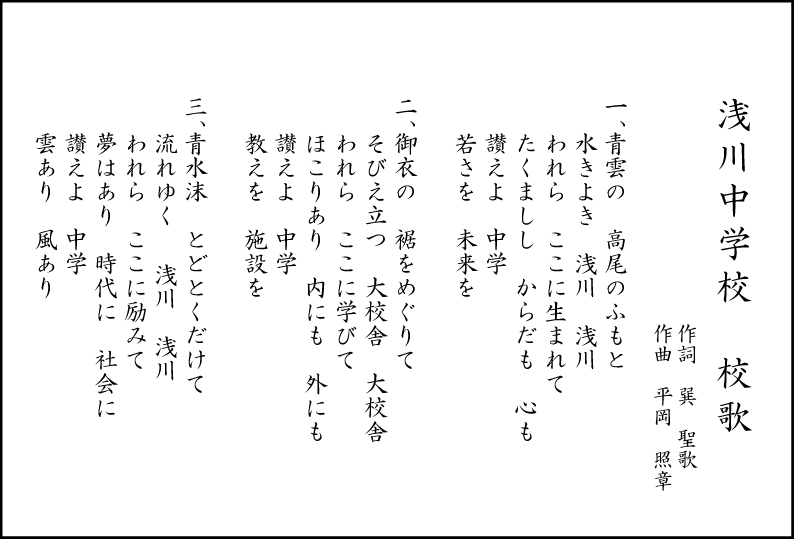 浅川中学校　校歌
作詞　巽　聖歌
作曲　平岡　照章
一、青雲の　高尾のふもと
水きよき　浅川　浅川
われら　ここに生まれて
たくましし　からだも　心も
讃えよ　中学
若さを　未来を
二、御衣の　裾をめぐりて
そびえ立つ　大校舎　大校舎
われら　ここに学びて
ほこりあり　内にも　外にも
讃えよ　中学
教えを　施設を
三、青水沫　とどとくだけて
流れゆく　浅川　浅川
われら　ここに励みて
夢はあり　時代に　社会に
讃えよ　中学
雲あり　風あり